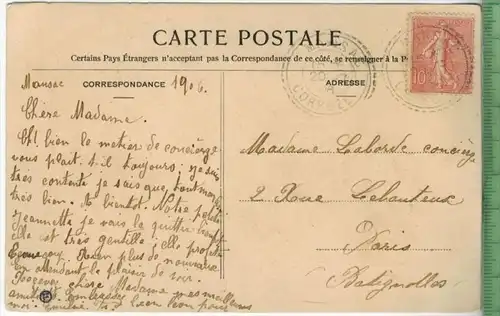 CARTE POSTALE
Certains Pays Étrangers n'acceptant pas la Correspondance de ce côté, se renseigner à la P
CORRESPONDANCE
ADRESSE
10
Mansac 1906.
Chère Madame.
Eh! bien le metier de concierge
vous plait-t-il toujours; je suis
très contente je sais que, tout marche
très bien. A bientot. Notre petite
Jeannette je vais la quitter
elle est très gentille; elle profite
Rien plus de nouveau
En attendant le plaisir de
Recevez chère Madame mes meilleures
amitiés.
Madame Laborde concierge
2 Rue Lebouteux
Paris
Batignolles